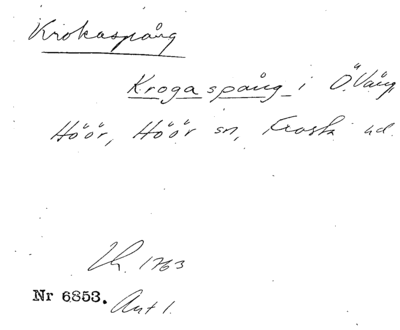 Krokaspång
Krogaspång i Ö. Vång
Höör, Höör sn, Frosta hd.
1763
Nr 6853. Akt 1.